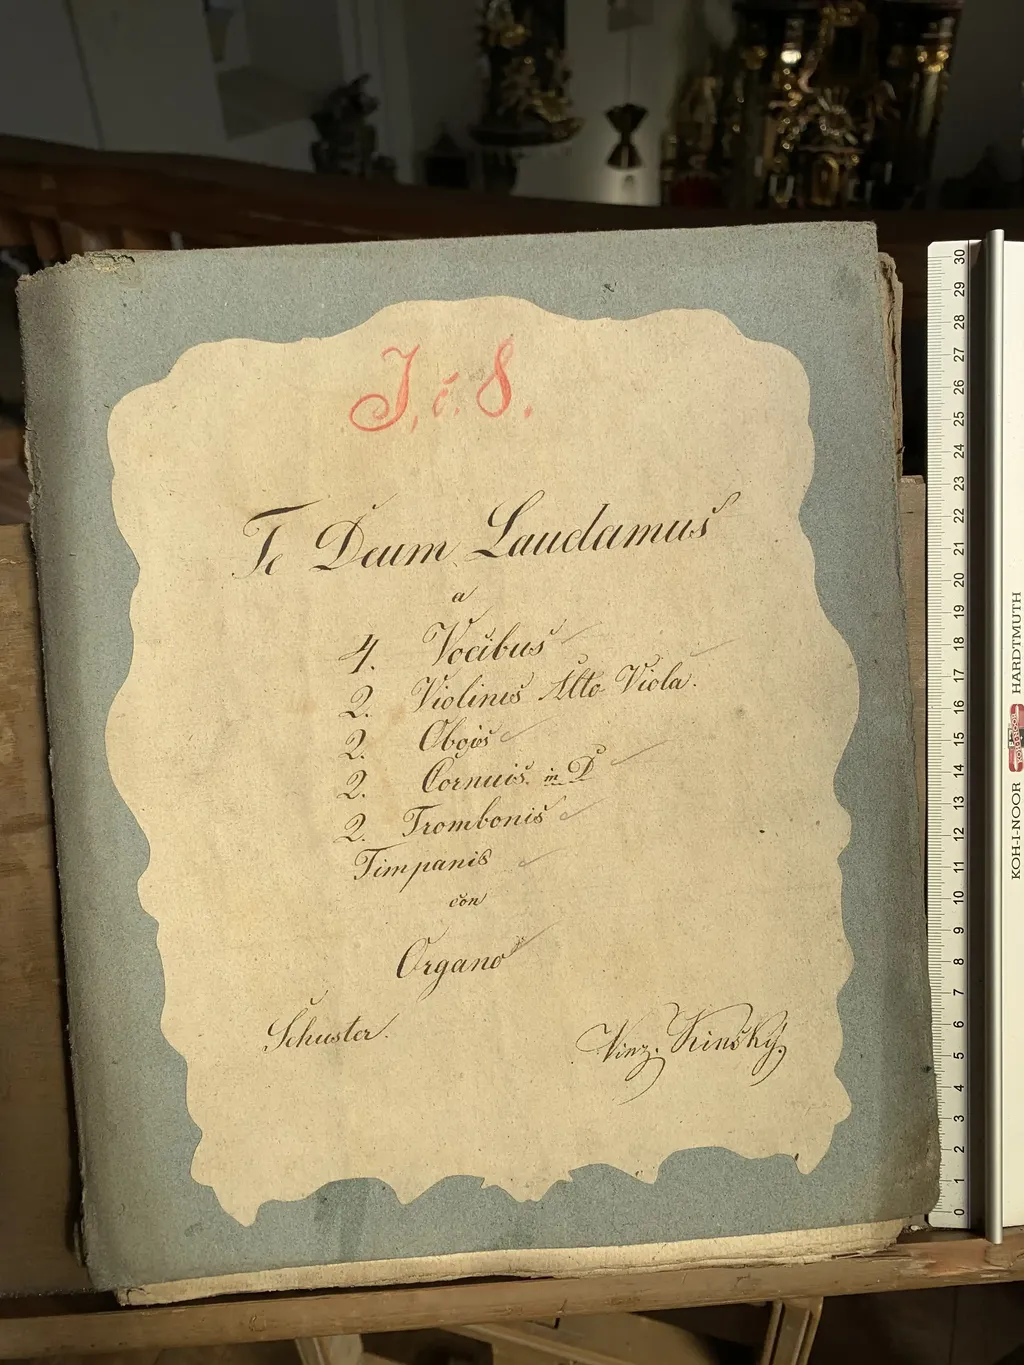 J. č. 8.
Te Deum Laudamus
a
4. Vocibus
2. Violinis Alto Viola.
2. Obois
2. Cornuis. in D
2. Trombonis
Timpanis
con
Organo
Schuster.
Vinz. Kinský.
30
29
28
27
26
25
24
23
22
21
20
19
18
17
16
15
14
13
12
11
10
9
8
7
6
5
4
3
2
1
0
KOH-I-NOOR HARDTMUTH